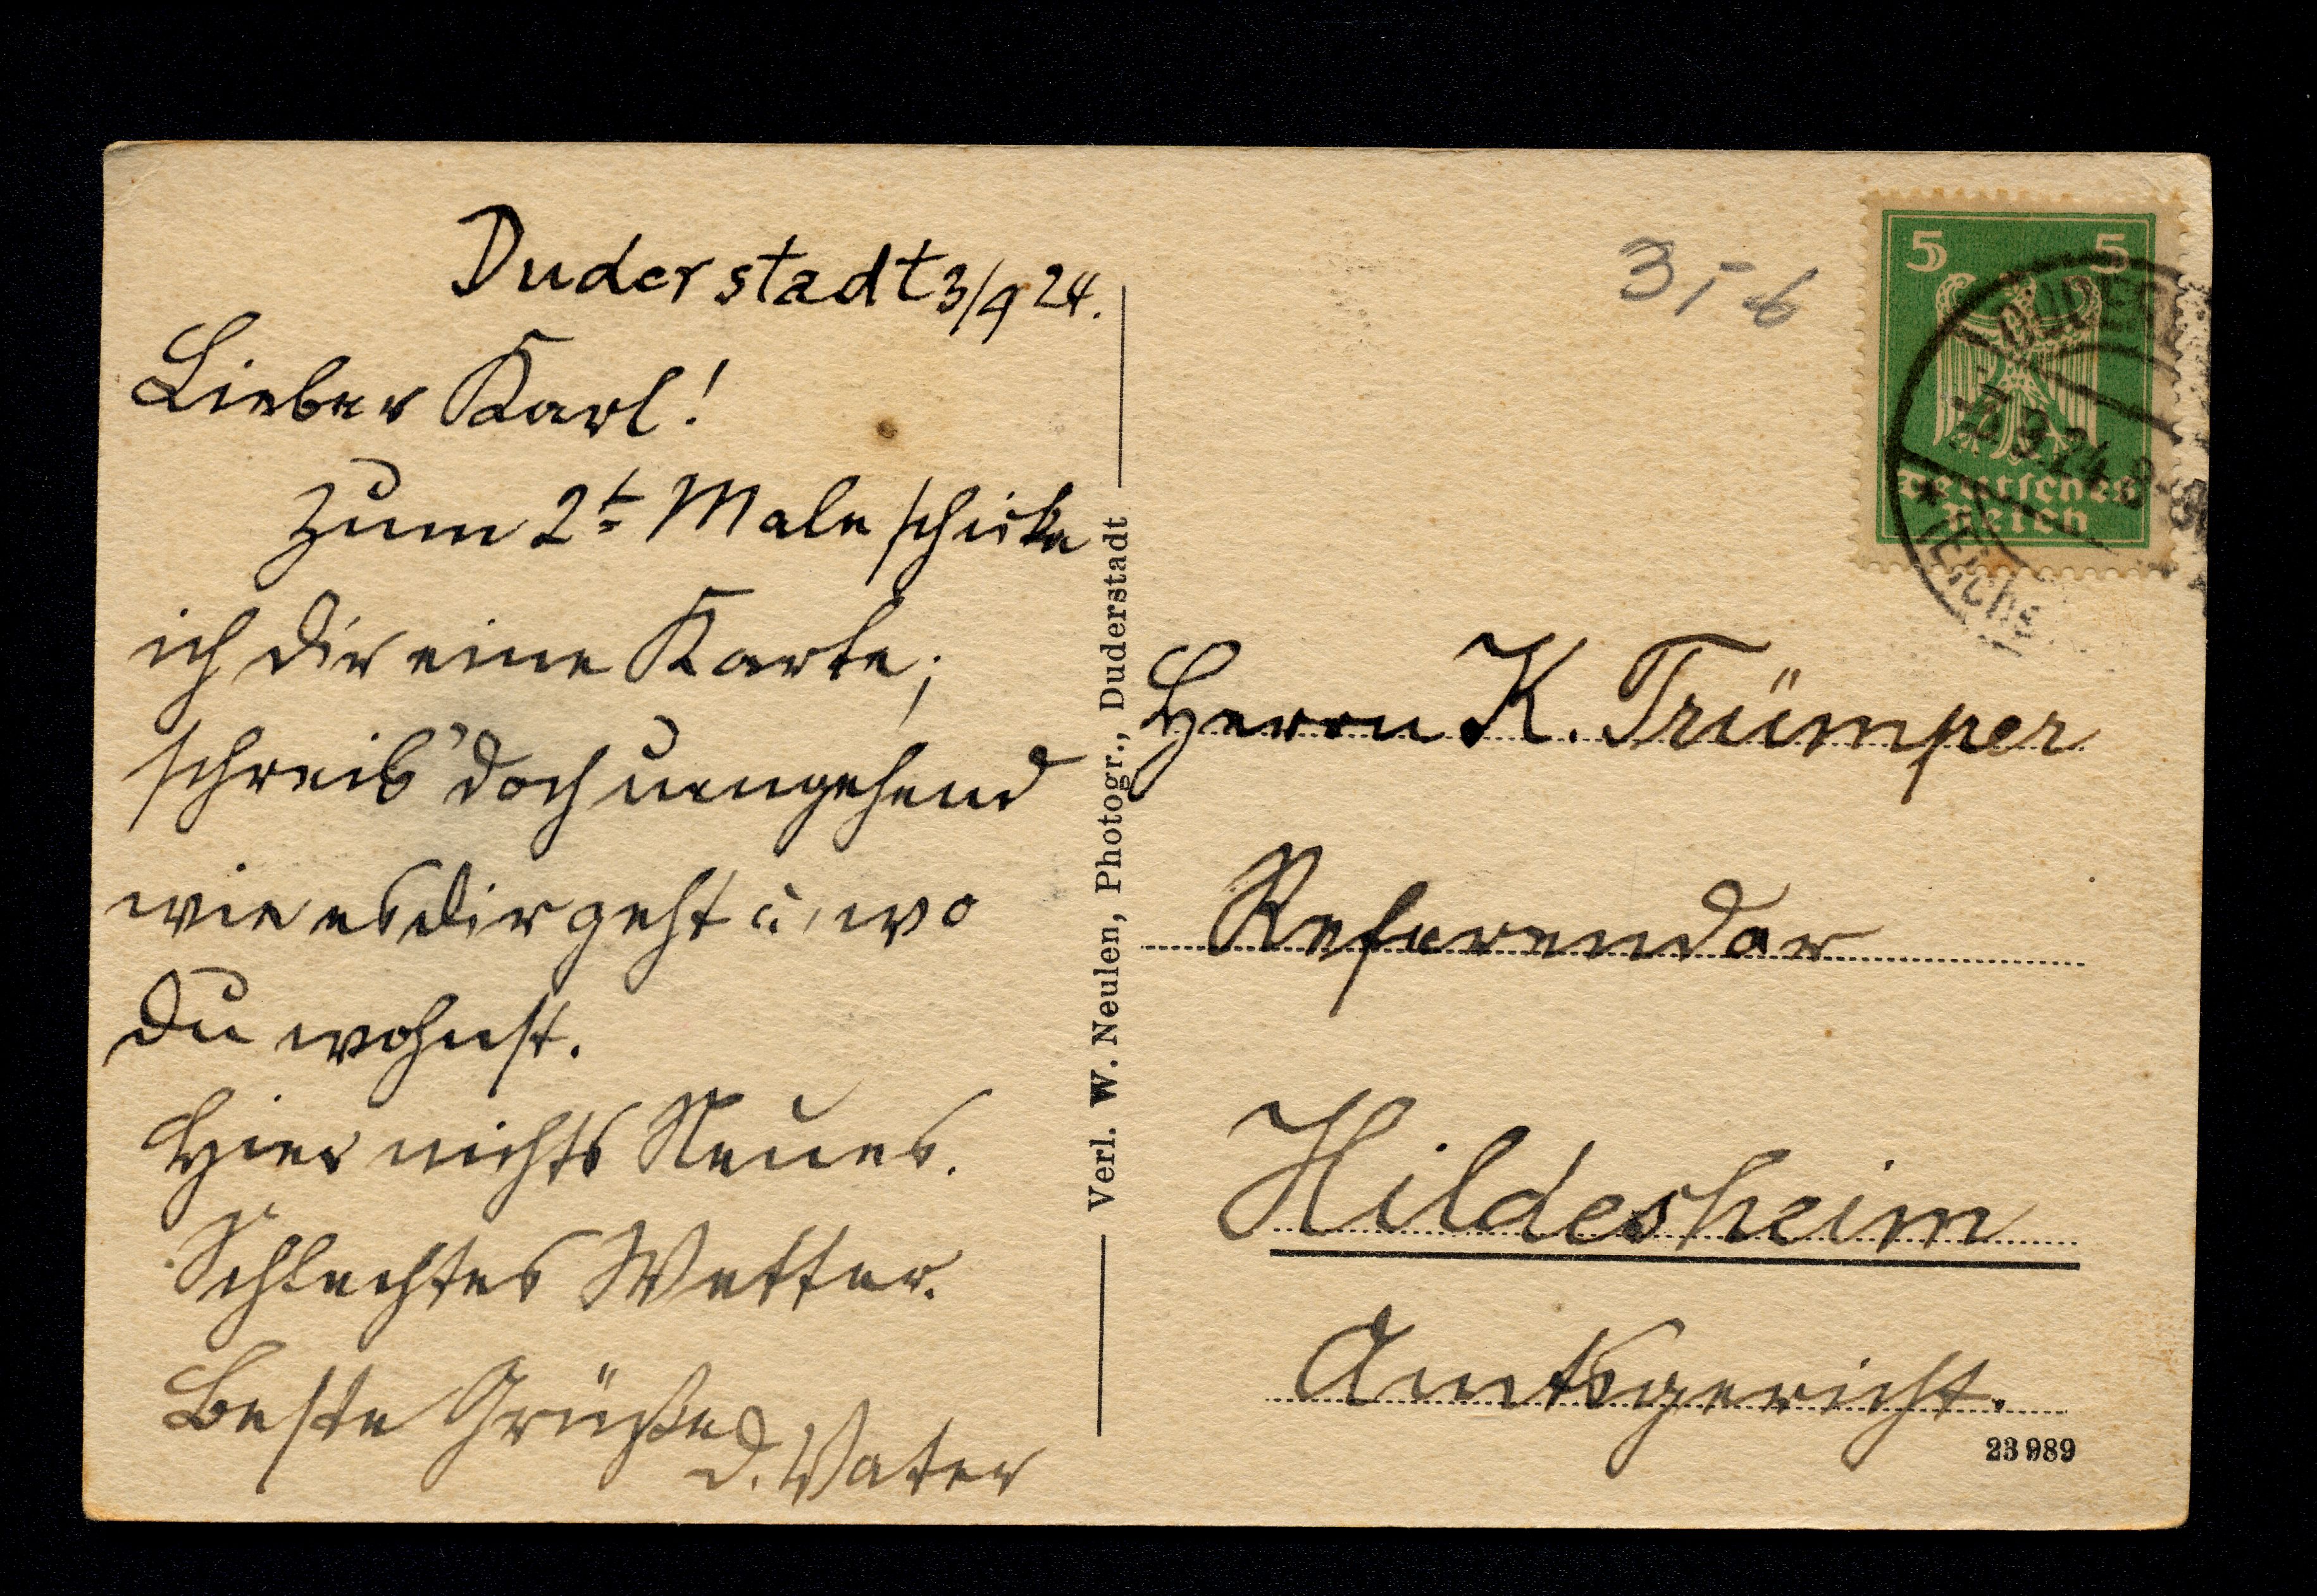 Duderstadt 3/9 24.
Lieber Karl!
Zum 2t Male schicke
ich dir eine Karte;
schreib' doch umgehend
wie es dir geht u. wo
du wohnst.
Hier nichts Neues.
Schlechtes Wetter.
Beste Grüße
d. Vater
Verl. W. Neulen, Photogr., Duderstadt
3,-
5 5
Deutsches
Reich
3.9.24.8-9
Herrn K. Trümper
Referendar
Hildesheim
Amtsgericht.
23989